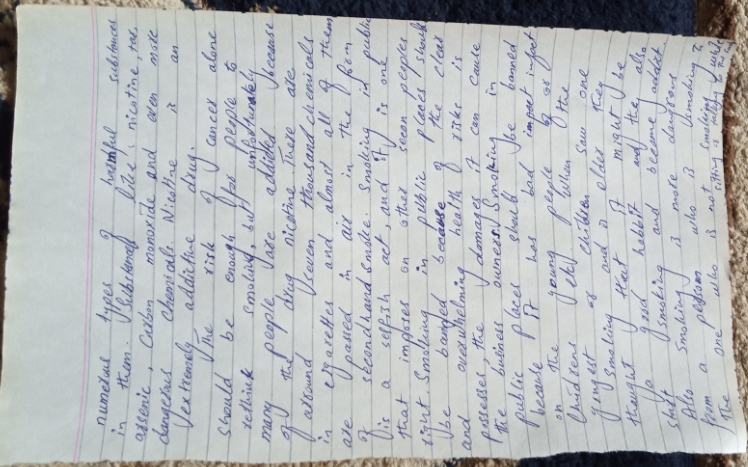 numerous types of harmful substances
in them. Substances like: nicotine, tar,
arsenic, Carbon monoxide and even more
dangerous chemicals. Nicotine is an
extremely addictive drug.
The risk of cancer alone
should be enough for people to
rethink smoking, but unfortunately
many people are addicted because
of the drug nicotine. There are
around seven thousand chemicals
in cigarettes and almost all of them
are passed in air in the from
of secondhand smoke. Smoking in public
is a selfish act, and it is one
that imposes on other peoples
right. Smoking in public places should
be banned because of the clear
and overwhelming health risks is
possesses, the damages it can cause
the busness owners. Smoking in
public places should be banned
because it has bad impact
on the young people or of
childrens etc. When the
yongest or children saw one
smoking and is older they
thought that it might be
a good habbit and the also
start smoking and become addict.
Also smoking is more dangrous
from a person who is smoking to
one who is not smoking
The sitting